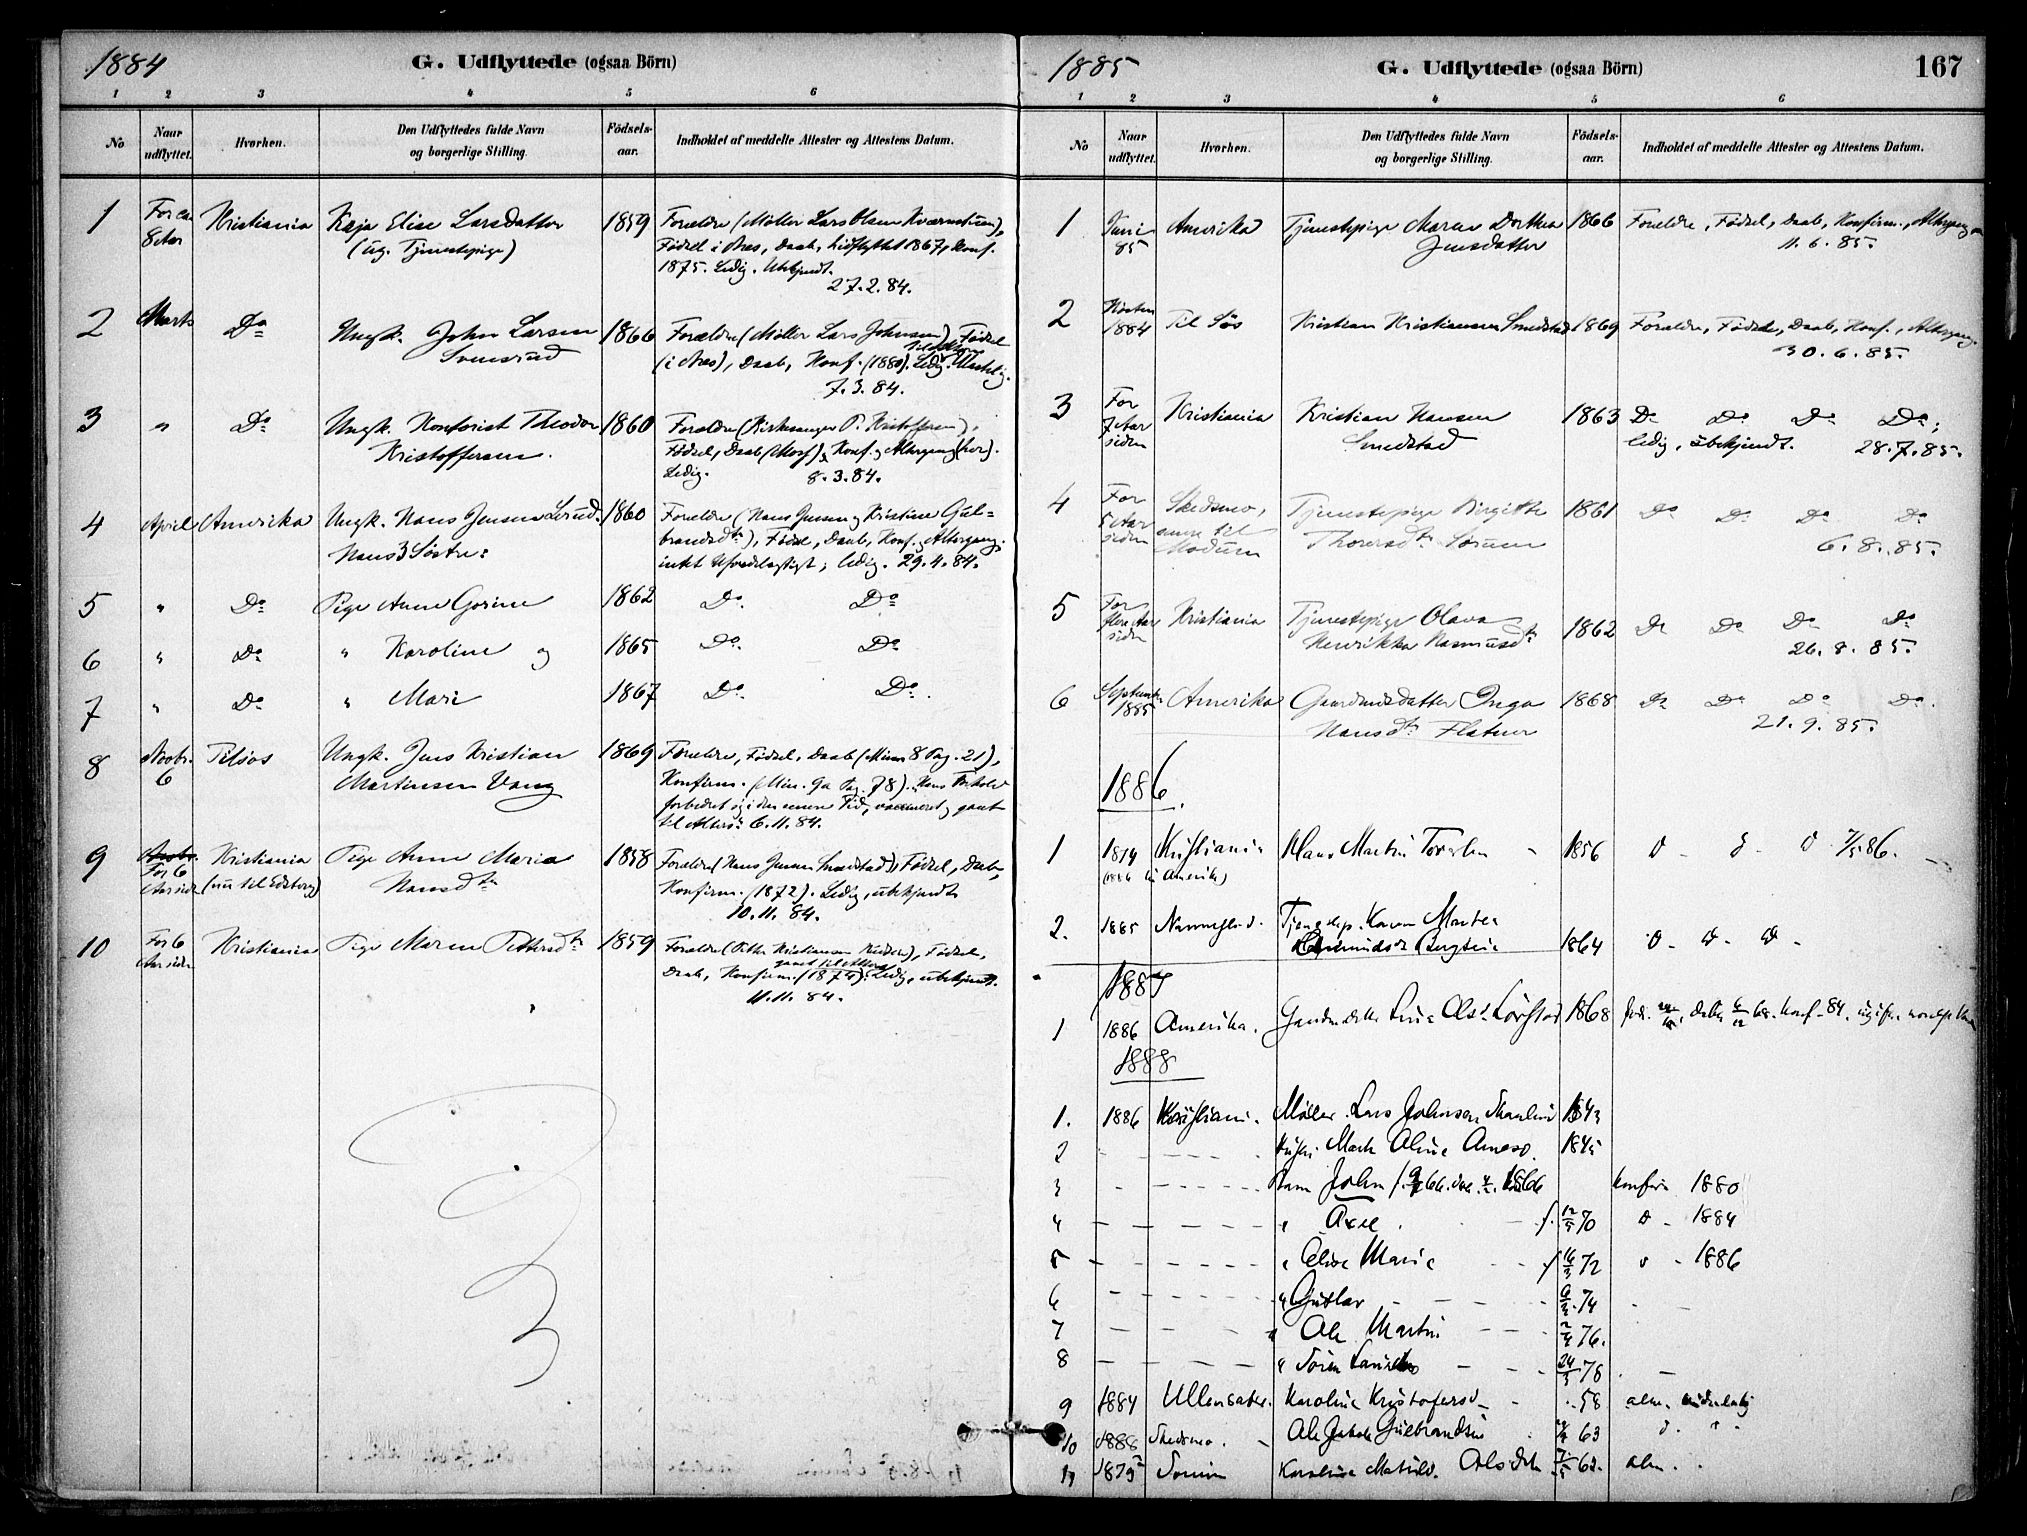 1884
G. Udflyttede (ogsaa Börn)
1 2 3 4 5 6
No
Naar udflyttet.
Hvorhen.
Den Udflyttedes fulde Navn og borgerlige Stilling.
Födsels-aar.
Indholdet af meddelte Attester og Attestens Datum.
1 For ca 8 Aar Kristiania Kaja Elise Larsdatter 1859 Forældre (Möller Lars Olsen Kværnstuen),
(ug. Tjenestepige) Födsel i Nes, Daab, Indflyttet 1867, Konf.
1875. Ledig. Ubekjendt.
27.2.84.
2 Marts Do Ungk. John Larsen 1866 Forældre (Möller Lars Johnsen), Födsel
Svensrud (i Nes), Daab, Konf. (1880). Ledig.
7.3.84.
3 " Do Ungk. Kontorist Theodor 1860 Forældre (Kirkesanger P. Kristoffersen),
Kristoffersen. Födsel, Daab, Konf. og Altergang (her).
Ledig. 8.3.84.
4 April Amerika Ungk. Hans Jensen 1860 Forældre (Hans Jensen og Kristine Gul=
Hans 3 Söstre: brandsdtr), Födsel, Daab, Konf. og Altergang;
ledig. 29.4.84.
5 " Do Pige Anne Gorine 1862 Do. Do
6 " Do " Karoline og 1865 Do. Do
7 " Do " Mari 1867 Do. Do.
8 Novbr. 6 Tilsös Ungk. Jens Kristian 1869 Forældre, Födsel, Daab (Minr 8 Pag. 21),
Martinsen Vang Konfirm. (Min. 9a Pag. 78). Hans Forhold
forbedret sig i den senere Tid, vaccineret og gaaet
til Alters. 6.11.84.
9 For 6 Aar siden Kristiania Pige Anne Maria 1858 Forældre (Hans Jensen Smedstad), Födsel, Daab,
(nu til Eidsberg) Hansdtr Konfirm. (1872). Ledig, ubekjendt
10.11.84.
10 For 6 Aar siden Kristiania Pige Maren Pettersdtr 1859 Forældre (Petter Kristiansen), Födsel,
gaaet til Alters
Daab, Konfirm. (1874). Ledig, ubekjendt.
11.11.84.
1885
G. Udflyttede (ogsaa Börn)
167
1 2 3 4 5 6
No
Naar udflyttet.
Hvorhen.
Den Udflyttedes fulde Navn og borgerlige Stilling.
Födsels-aar.
Indholdet af meddelte Attester og Attestens Datum.
1 Juni 85 Amerika Tjenestepige Maren Dorthea 1866 Forældre, Födsel, Daab, Konfirm., Altergang
Jensdatter 11.6.85.
2 Hösten 1884 Til Sös Kristian Kristiansen Smedstad 1869 Forældre, Födsel, Daab, Konf., Altergang.
30.6.85.
3 For 7 Aar siden Kristiania Kristian Hansen 1863 Do Do Do Do;
Smedstad ledig, ubekjendt. 28.7.85.
4 For 5 Aar siden Skedsmo, til Modum Tjenestepige Birgitte 1861 Do Do Do Do
Thorersdtr Sörum 6.8.85.
5 For flere Aar siden Kristiania Tjenestepige Olava 1862 Do Do Do Do
Henrikka Rasmusdtr 26.8.85.
6 September 1885 Amerika Gaardmandsdatter Inga 1868 Do Do Do Do.
Hansdtr Flatner 21.9.85.
1886.
1 1879 Kristiania Hans Martin 1856 D - D - D 7/5 86.
(1886 til Amerika)
2. 1885 Tjenestep. Karen Marthea
1864 D - D - D -
1887
1 1886 Amerika. Gaardm.datter Lina Olsdr 1868 Konf. 84.
1888
1. 1886 Kristiania. Möller Lars Johnsen 1843
2 - - Hustru Marth Oline 1845
3 - - Barn John 1866 konfir. 1880
4 - - " Axel 12/5 70 D - 1884
5 - - " Oline Marie 72 D - 1886
6 - - " Gustav 74
7 - - " Ole Martin 76.
8 - - " Sören 24/5 78
9 1884 Ullensaker. Karoline Kristofersd. 58 alm.
10 1888 Skedsmo. Ole Jakob Gulbrandsen 63
11 1879 Karoline Mathild. Olsdtr 62. alm.